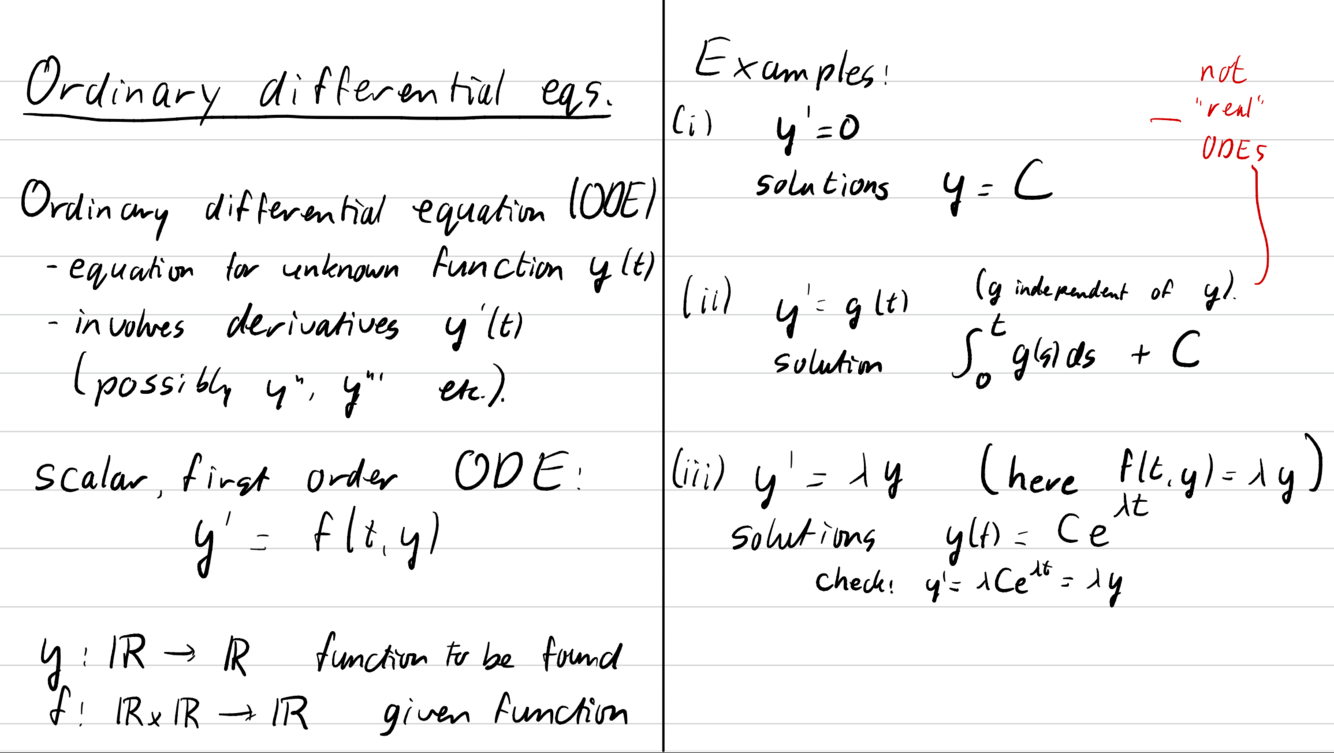 Ordinary differential eqs.
Ordinary differential equation (ODE)
- equation for unknown function y(t)
- involves derivatives y'(t)
(possibly y'', y''' etc.).
scalar, first order ODE:
y' = f(t, y)
y : ℝ → ℝ function to be found
f : ℝ × ℝ → ℝ given function
Examples:
(i) y' = 0
solutions y = C
not
"real"
ODEs
(ii) y' = g(t) (g independent of y).
solution ∫₀ᵗ g(s) ds + C
(iii) y' = λy (here f(t, y) = λy)
solutions y(t) = Ce^{λt}
check: y' = λCe^{λt} = λy